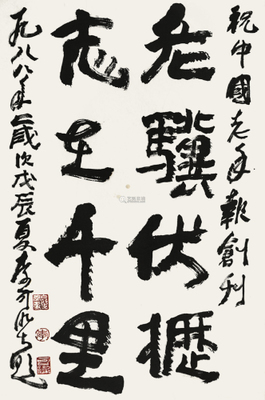 祝中國老年報創刊
老驥伏櫪
志在千里
一九八八年歲次戊辰夏李可染題